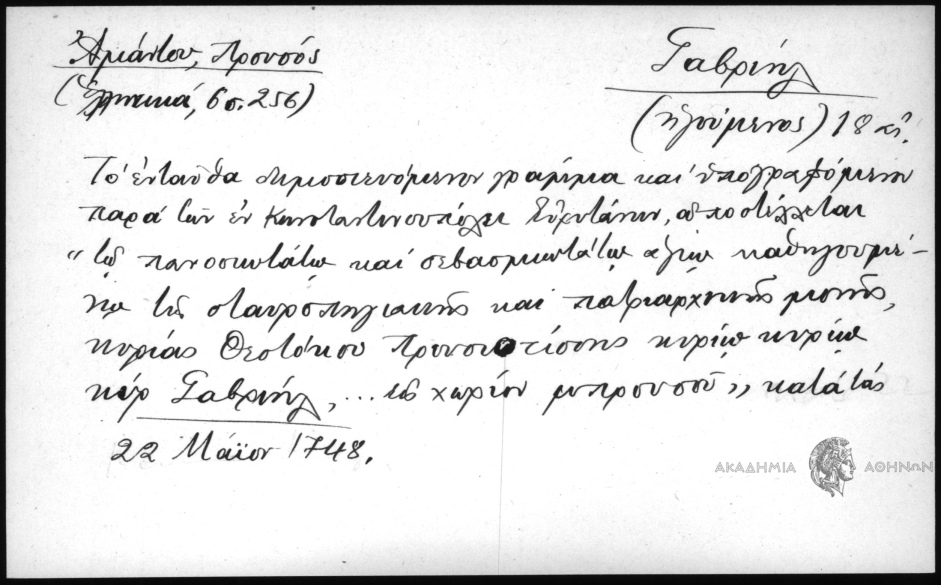 Ἀμάντου, Προυσός
(Ἑλληνικά, 6 σ. 256)
Γαβριήλ
(ἡγούμενος) 18 αἰ.
Τό ἐνταῦθα δημοσιευόμενον γράμμα καί ὑπογραφόμενον
παρά τῶν ἐν Κωνσταντινουπόλει Εὐρυτάνων, ἀποστέλλεται
"τῷ πανοσιωτάτῳ καί σεβασμιωτάτῳ ἁγίῳ καθηγουμέ-
νῳ τῆς σταυροπηγιακῆς καί πατριαρχικῆς μονῆς,
κυρίας Θεοτόκου Προυσιωτίσσης κυρίῳ κυρίῳ
κύρ Γαβριήλ, ... εἰς χωρίον μπρουσοῦ" κατά τάς
22 Μάϊον 1748.
ΑΚΑΔΗΜΙΑ ΑΘΗΝΩΝ